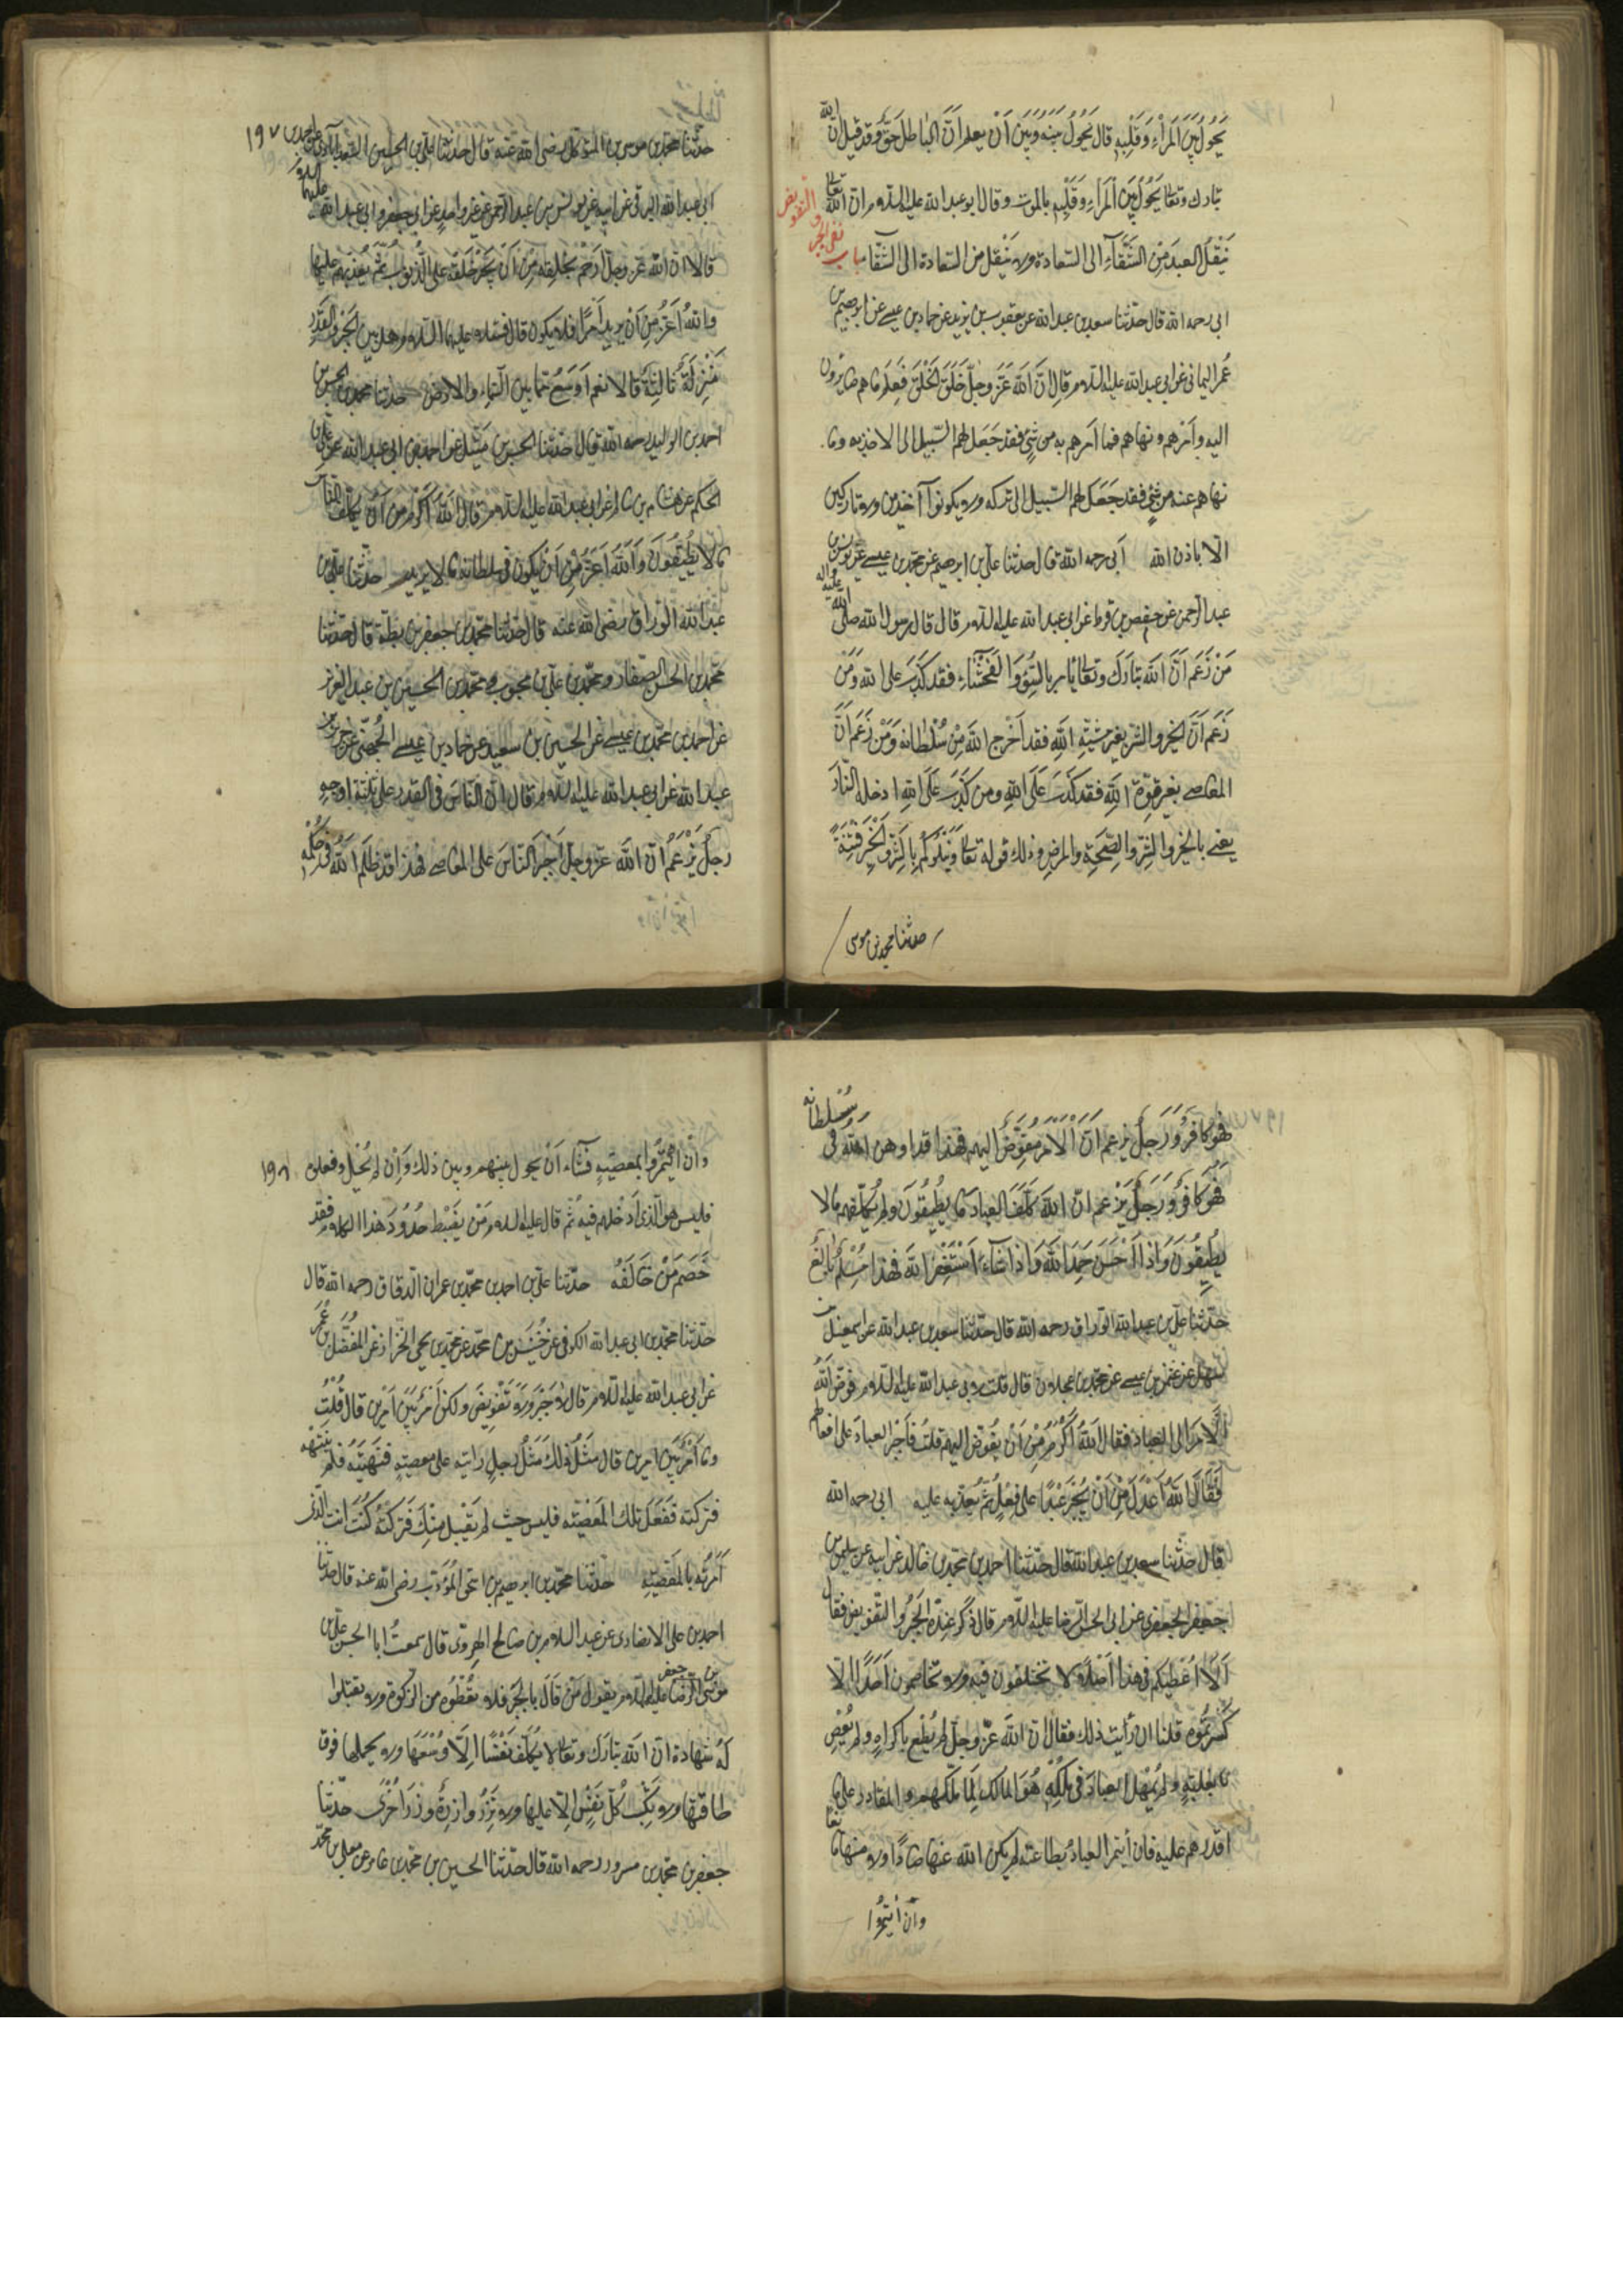 يَحُولُ بَيْنَ الْمَرْءِ وَقَلْبِهِ قال يَحُولُ بَيْنَهُ وَبَيْنَ أَنْ يعلم انّ الباطل حَقّ وقد قيل انّ الله
تبارك وتعالى يَحُولُ بَيْنَ الْمَرْءِ وَقَلْبِهِ بالموت وقال ابو عبد الله عليه السلام ان الله تعالى
يَنْقُلُ العبدَ مِنَ الشَّقَاءِ الى السّعادة ولا يَنْقُل من السّعادة الى الشّقاء باب نفى الجبر والتفويض
ابى رحمه الله قال حدّثنا سعد بن عبد الله عن يعقوب بن يزيد عن حماد بن عيسى عن ابرهيم بن
عُمر اليمانى عن ابى عبد الله عليه السلام قال انّ اللهَ عَزَّ وجلّ خَلَقَ الْخَلْقَ فَعَلِمَ ما هم صائرون
اليه وأمَرهم ونهاهم فما أمَرهم به من شئٍ فقد جَعَلَ لهم السّبيل الى الاخذ به وما
نهاهم عنه من شئٍ فقد جَعَل لهم السّبيل الى تركه ولا يكونوا آخذين ولا تاركين
الّا باذن الله ابى رحمه الله قال حدثنا علىّ بن ابرهيم عن محمد بن عيسى عن يونس بن
عبد الرّحمن عن حفص بن قرط عن ابى عبد الله عليه السلام قال قال رسول الله صلى الله عليه واله
مَنْ زَعَمَ انّ اللهَ تبَارَكَ وتعالى يأمر بالسُّوءِ وَالْفَحْشَاءِ فقد كَذَبَ على الله وَمَنْ
زَعَمَ اَنَّ الخير والشرّ بغير مشيّةِ اللهِ فقد اَخْرج اللهَ مِنْ سُلْطانه وَمَنْ زَعَمَ اَنَّ
المعاصى بغير قوّة اللهِ فقد كَذَبَ عَلَى اللهِ ومن كَذَبَ عَلَى اللهِ ادخله النّارَ
يعنى بالخير والشرّ الصّحّة والمرض وذلك قوله تعالى وَنَبْلُوكُمْ بِالشَّرِّ وَالْخَيْرِ فِتْنَةً
حدثنا محمد بن موسى
١٩٧
حدّثنا محمّد بن موسى بن المتوكل رضى الله عنه قال حدّثنا علىّ بن الحسين السّعدآبادى عن احمد بن
ابى عبد الله البرقى عن ابيه عن يونس بن عبد الرحمن عن غير واحدٍ عن ابى جعفر وابى عبد الله عليهما السلام
قالا انّ الله عزّ وجلّ اَرْحَمُ بخلقِه مِنْ اَنْ يُجْبِرَ خَلْقَهُ على الذُّنوب ثُمَّ يُعذّبهم عليها
واللهُ اَعَزُّ مِن اَنْ يريد اَمْرًا فلا يكون قال فسئلا عليهما السّلام هل بين الجبر والقَدَر
مَنْزِلَةٌ ثَالِثَةٌ قالا نعم اَوْسَعُ ممّا بين السّماء والارض حدّثنا محمد بن الحسن بن
احمد بن الوليد رحمه الله قال حدّثنا الحسين بن مَتّيل عن احمد بن ابى عبد الله عن علىّ بن
الحَكَم عن هشام بن سالم عن ابى عبد الله عليه السلام قال الله اَكْرَمُ من اَنْ يُكَلِّفَ النّاس
ما لا يُطيقُونَ وَاللهُ اَعَزُّ مِنْ اَنْ يَكونَ فى سلطانه ما لا يريد حدّثنا علىّ بن
عبد الله الورّاق رضى الله عنه قال حدّثنا محمّد بن جعفر بن بطّة قال حدّثنا
محمّد بن الحسن الصفّار ومحمّد بن علىّ بن محبوب ومحمّد بن الحسين بن عبد العزيز
عن احمد بن محمّد بن عيسى عن الحسين بن سعيد عن حماد بن عيسى الجُهَنى عن حريز بن
عبد الله عن ابى عبد الله عليه السلام قال انّ النّاسَ فى القدر على ثلثة اوجهٍ
رجلٌ يَزْعَمُ انّ اللهَ عزّ وجلّ اَجْبَرَ النّاسَ على المعاصى فهذا قد ظَلَمَ اللهَ فى حُكْمِهِ
فهو كافرٌ ورَجلٌ يزعم انّ اْلاَمْرَ مُفَوَّضٌ اليهم فهذا قد اوهن الله فى سُلطانه
فهو كافرٌ وَرَجلٌ يَزْعم انّ اللهَ كَلَّفَ العبادَ ما يُطِيقُونَ ولم يُكلّفهم ما لا
يُطِيقُونَ وَاِذا اَحْسَنَ حَمِدَ اللهَ وَاِذا اَسَاءَ اسْتَغْفَرَ اللهَ فهذا مُسْلِمٌ بَالِغٌ
حدّثنا علىّ بن عبد الله الورّاق رحمه الله قال حدّثنا سعد بن عبد الله عن اسمعيل بن
سهل عن عثمن بن عيسى عن محمّد بن عجلان قال قلت لابى عبد الله عليه السلام فوّض اللهُ
الْاَمْرَ الى العباد فقال اللهُ اَكْرَمُ مِنْ اَنْ يُفوّض اليهم قلتُ فاَجْبَرَ العبادَ على افعالهم
فقال اللهُ اَعْدَلُ مِنْ اَنْ يُجْبِرَ عَبْدًا على فِعْلٍ ثُمّ يُعذّبه عليه ابى رحمه الله
قال حدّثنا سعد بن عبد الله قال حدّثنا احمد بن محمّد بن خالد عن ابيه عن سليمن بن
جعفر الجعفرى عن ابى الحسن الرّضا عليه السّلام قال ذُكِرَ عنده الجَبْرُ والتّفويض فقال
اَلَا اُعْطيكم فى هذا اَصْلًا لا تختلفون فيه ولا تخاصمون اَحَدًا الّا
كَسَرْتُموه قلنا ان رأيت ذلك فقال انّ اللهَ عزّ وجلّ لم يُطَع باكراهٍ ولم يُعْصَ
بغلبةٍ ولم يُهْمِل العبادَ فى مُلْكِهِ هُوَ المالك لِما مَلَّكهم والقادر على ما
اقدرهم عليه فان اُيتمر العبادُ بطاعته لم يكن الله عنها صادًّا ولا منها مانعا
وان اُيتمرُوا
١٩٨
وان ايتَمَرُوا بمعصيته فشاء اَنْ يحول بينهم وبين ذلك وَاِنْ لم يَحُلْ وفعلوه
فليس هو الّذى اَدْخلهم فيه ثُمّ قال عليه السلام مَنْ يَضْبِط حُدُودَ هذا الكلام فقد
خَصَمَ مَنْ خَالَفَهُ حدّثنا علىّ بن احمد بن محمّد بن عمران الدّقاق رحمه الله قال
حدّثنا محمّد بن ابى عبد الله الكوفى عن خُنَيْس بن محمّد عن محمّد بن يحيى الخزّاز عن المُفَضّل بن عُمَر
عن ابى عبد الله عليه السّلام قال لا جَبْرَ وَلا تَفْويضَ ولكن اَمْرٌ بَيْنَ اَمْرين قال قُلْتُ
وما اَمْرٌ بَيْنَ امرين قال مَثَلُ ذلك مَثَلُ رجلٍ رايته على معصيتهٍ فنَهَيْتَهُ فلم يَنْتَهِ
فتركته ففعل تلك المعصيّته فليس حيث لم يَقْبل مِنْكَ فَتَركتَهُ كُنْتَ انت الّذى
اَمَرْتَه بالمَعْصيّتهِ حدّثنا محمّد بن ابرهيم بن اسحق المُؤَدّب رضى الله عنه قال حدّثنا
احمد بن على الانصارى عن عبد السلام بن صالح الهروىّ قال سمعتُ ابا الحسن علىّ بن
موسى الرّضا بن جعفر عليهم السّلام يقول مَنْ قَالَ بالجَبْرِ فلا تعْطُوه من الزكوة ولا تقبَلوا
لَهُ شهادةً انّ الله تبارَك وتعالى لا يُكَلِّفُ نَفْسًا اِلّا وُسْعَهَا ولا يحملها فوق
طاقتها ولا تَكْسِبُ كُلّ نَفْسٍ الّا عليها ولا تَزِرُ وازرةٌ وِزْرَ اُخْرى حدّثنا
جعفر بن محمّد بن مسرور رحمه الله قال حدّثنا الحسين بن محمّد بن عامر عن معلى بن محمّد